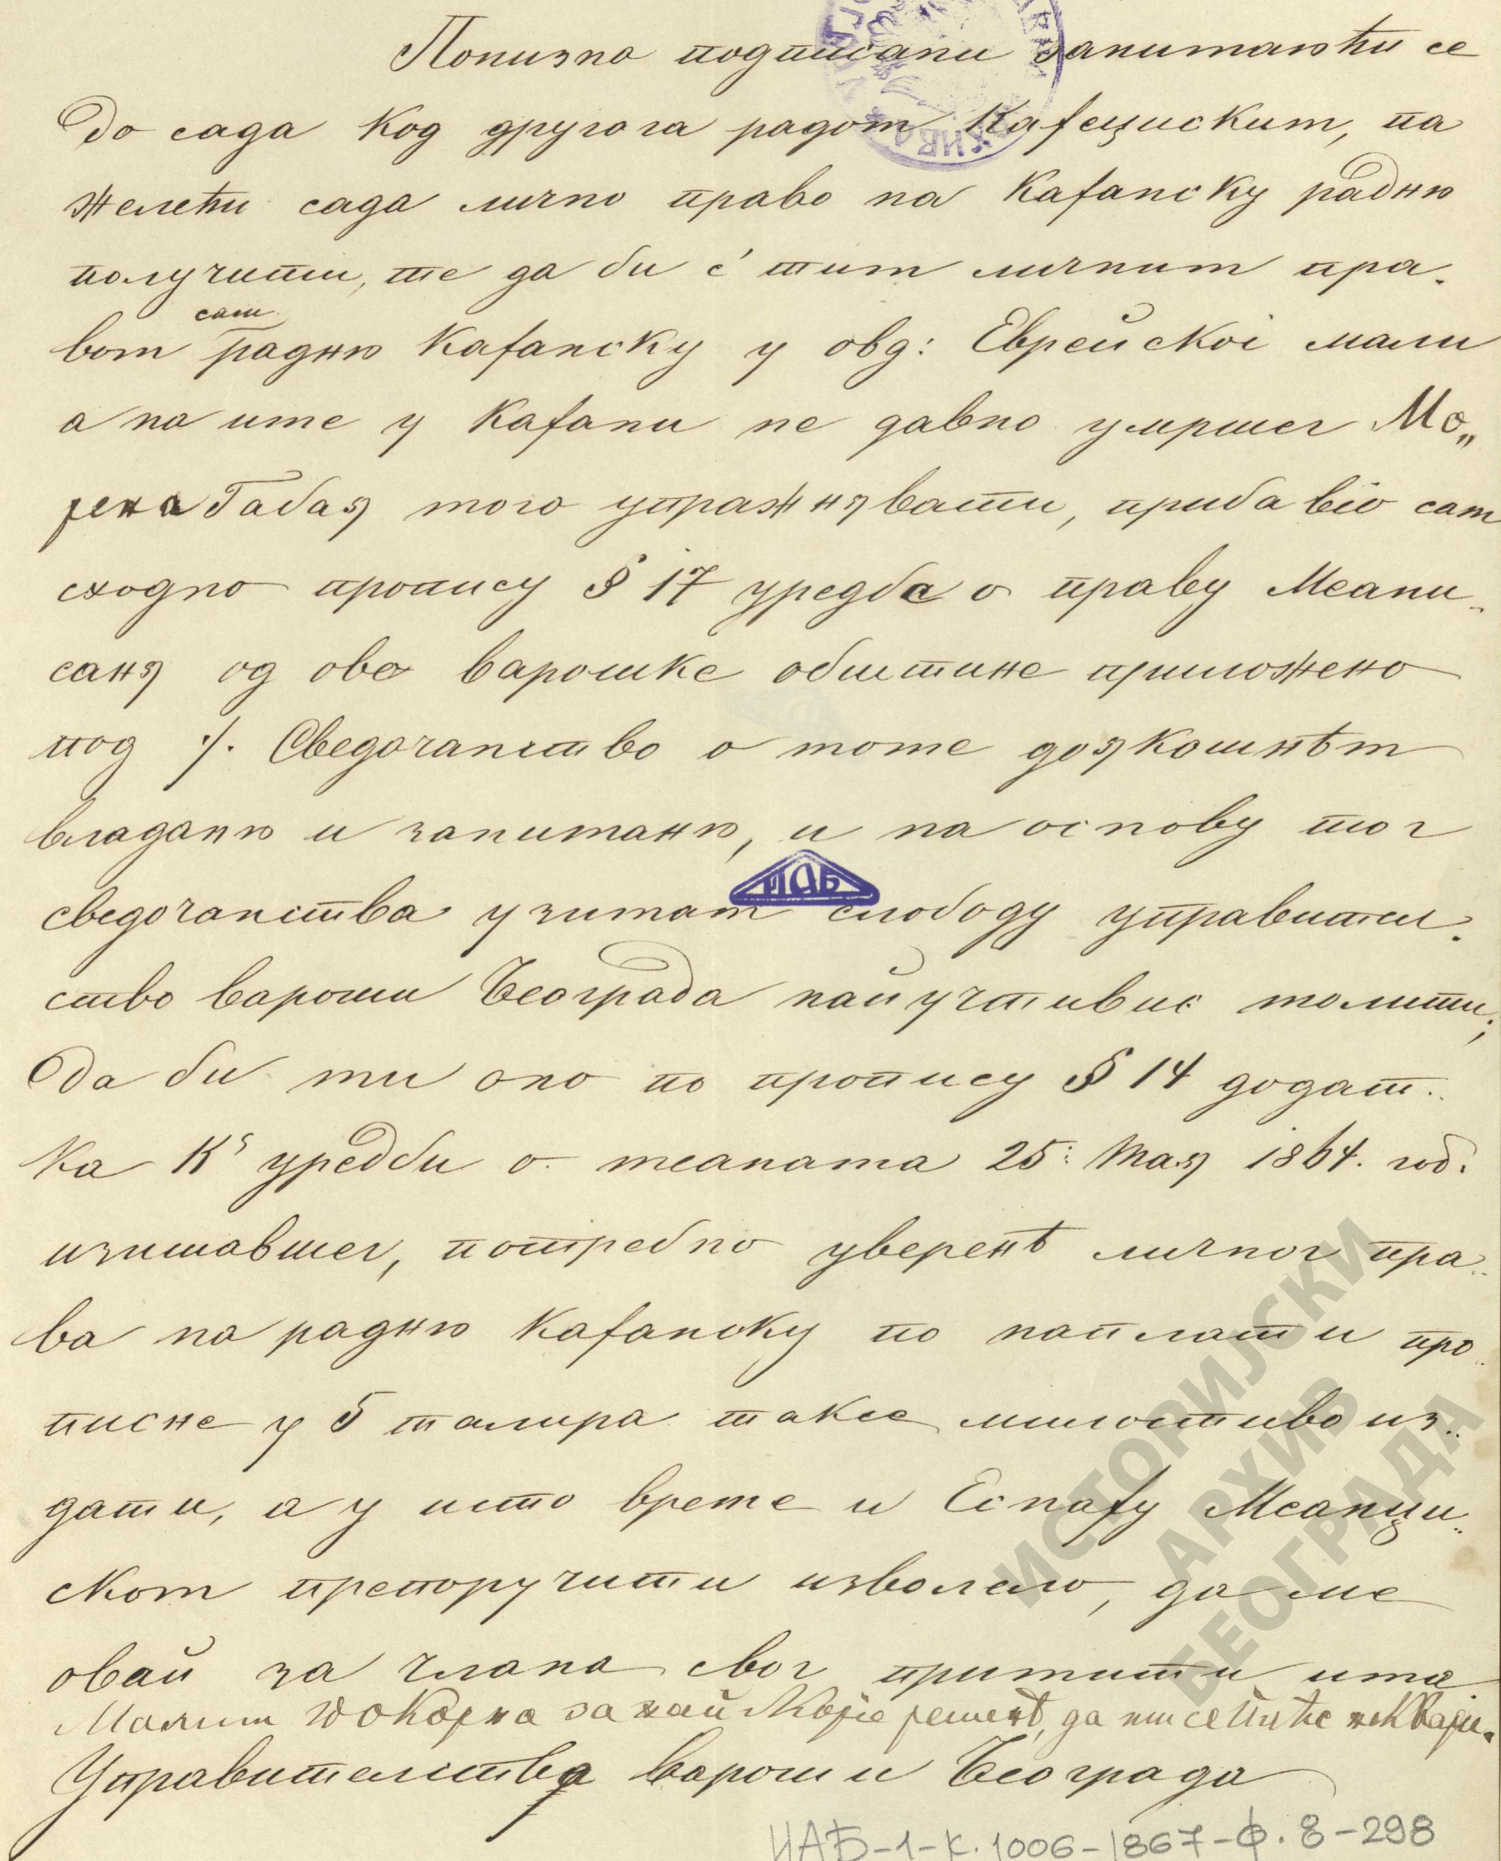 Понизно подписани занимаюћи се
до сада код другога радом Кафеџиским, па
желећи сада лично право на Кафанску радню
получити, те да би с' тим личним пра-
вом сам радню Кафанску у овд: Еврейскоі мали
а на име у Кафани не давно умршег Мо„
рена Габая мого упражнявати, прибавіо сам
сходно пропису § 17 уредбе о праву Меани-
саня од ове варошке обштине приложено
под ·/. Сведочанство о моме дояkошнѣм
владаню и заниманю, и на основу тог
сведочанства узимам слободу управител-
ство вароши Београда найучтивие молити,
Да би ми оно по пропису § 14 додат-
ка К' уредби о меанама 25: Мая 1864. год.
изишавшег, потребно уверенѣ личног пра-
ва на радню Кафанску по наплати про-
писне у 5 талира таксе милостиво из-
дати, а у исто време и Еснафу Меанџи-
ском препоручити изволело, да ме
овай за члана свог примити има
Молим покорно за най скорие решенѣ, да ми се пиће не квари.
Управителству вароши Београда
ИАБ-1-К.1006-1867-ф.8-298
ИАБ
ИСТОРИЈСКИ
АРХИВ
БЕОГРАДА